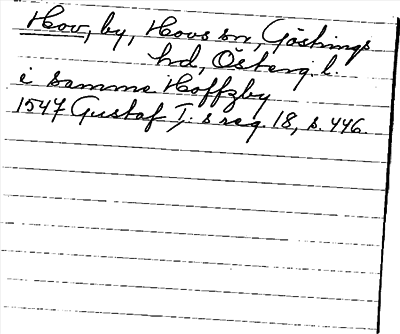 Hov, by, Hovs sn, Göstrings
hd, Österg. l.
i samme Hoffzby
1547 Gustaf I:s reg. 18, s. 446.